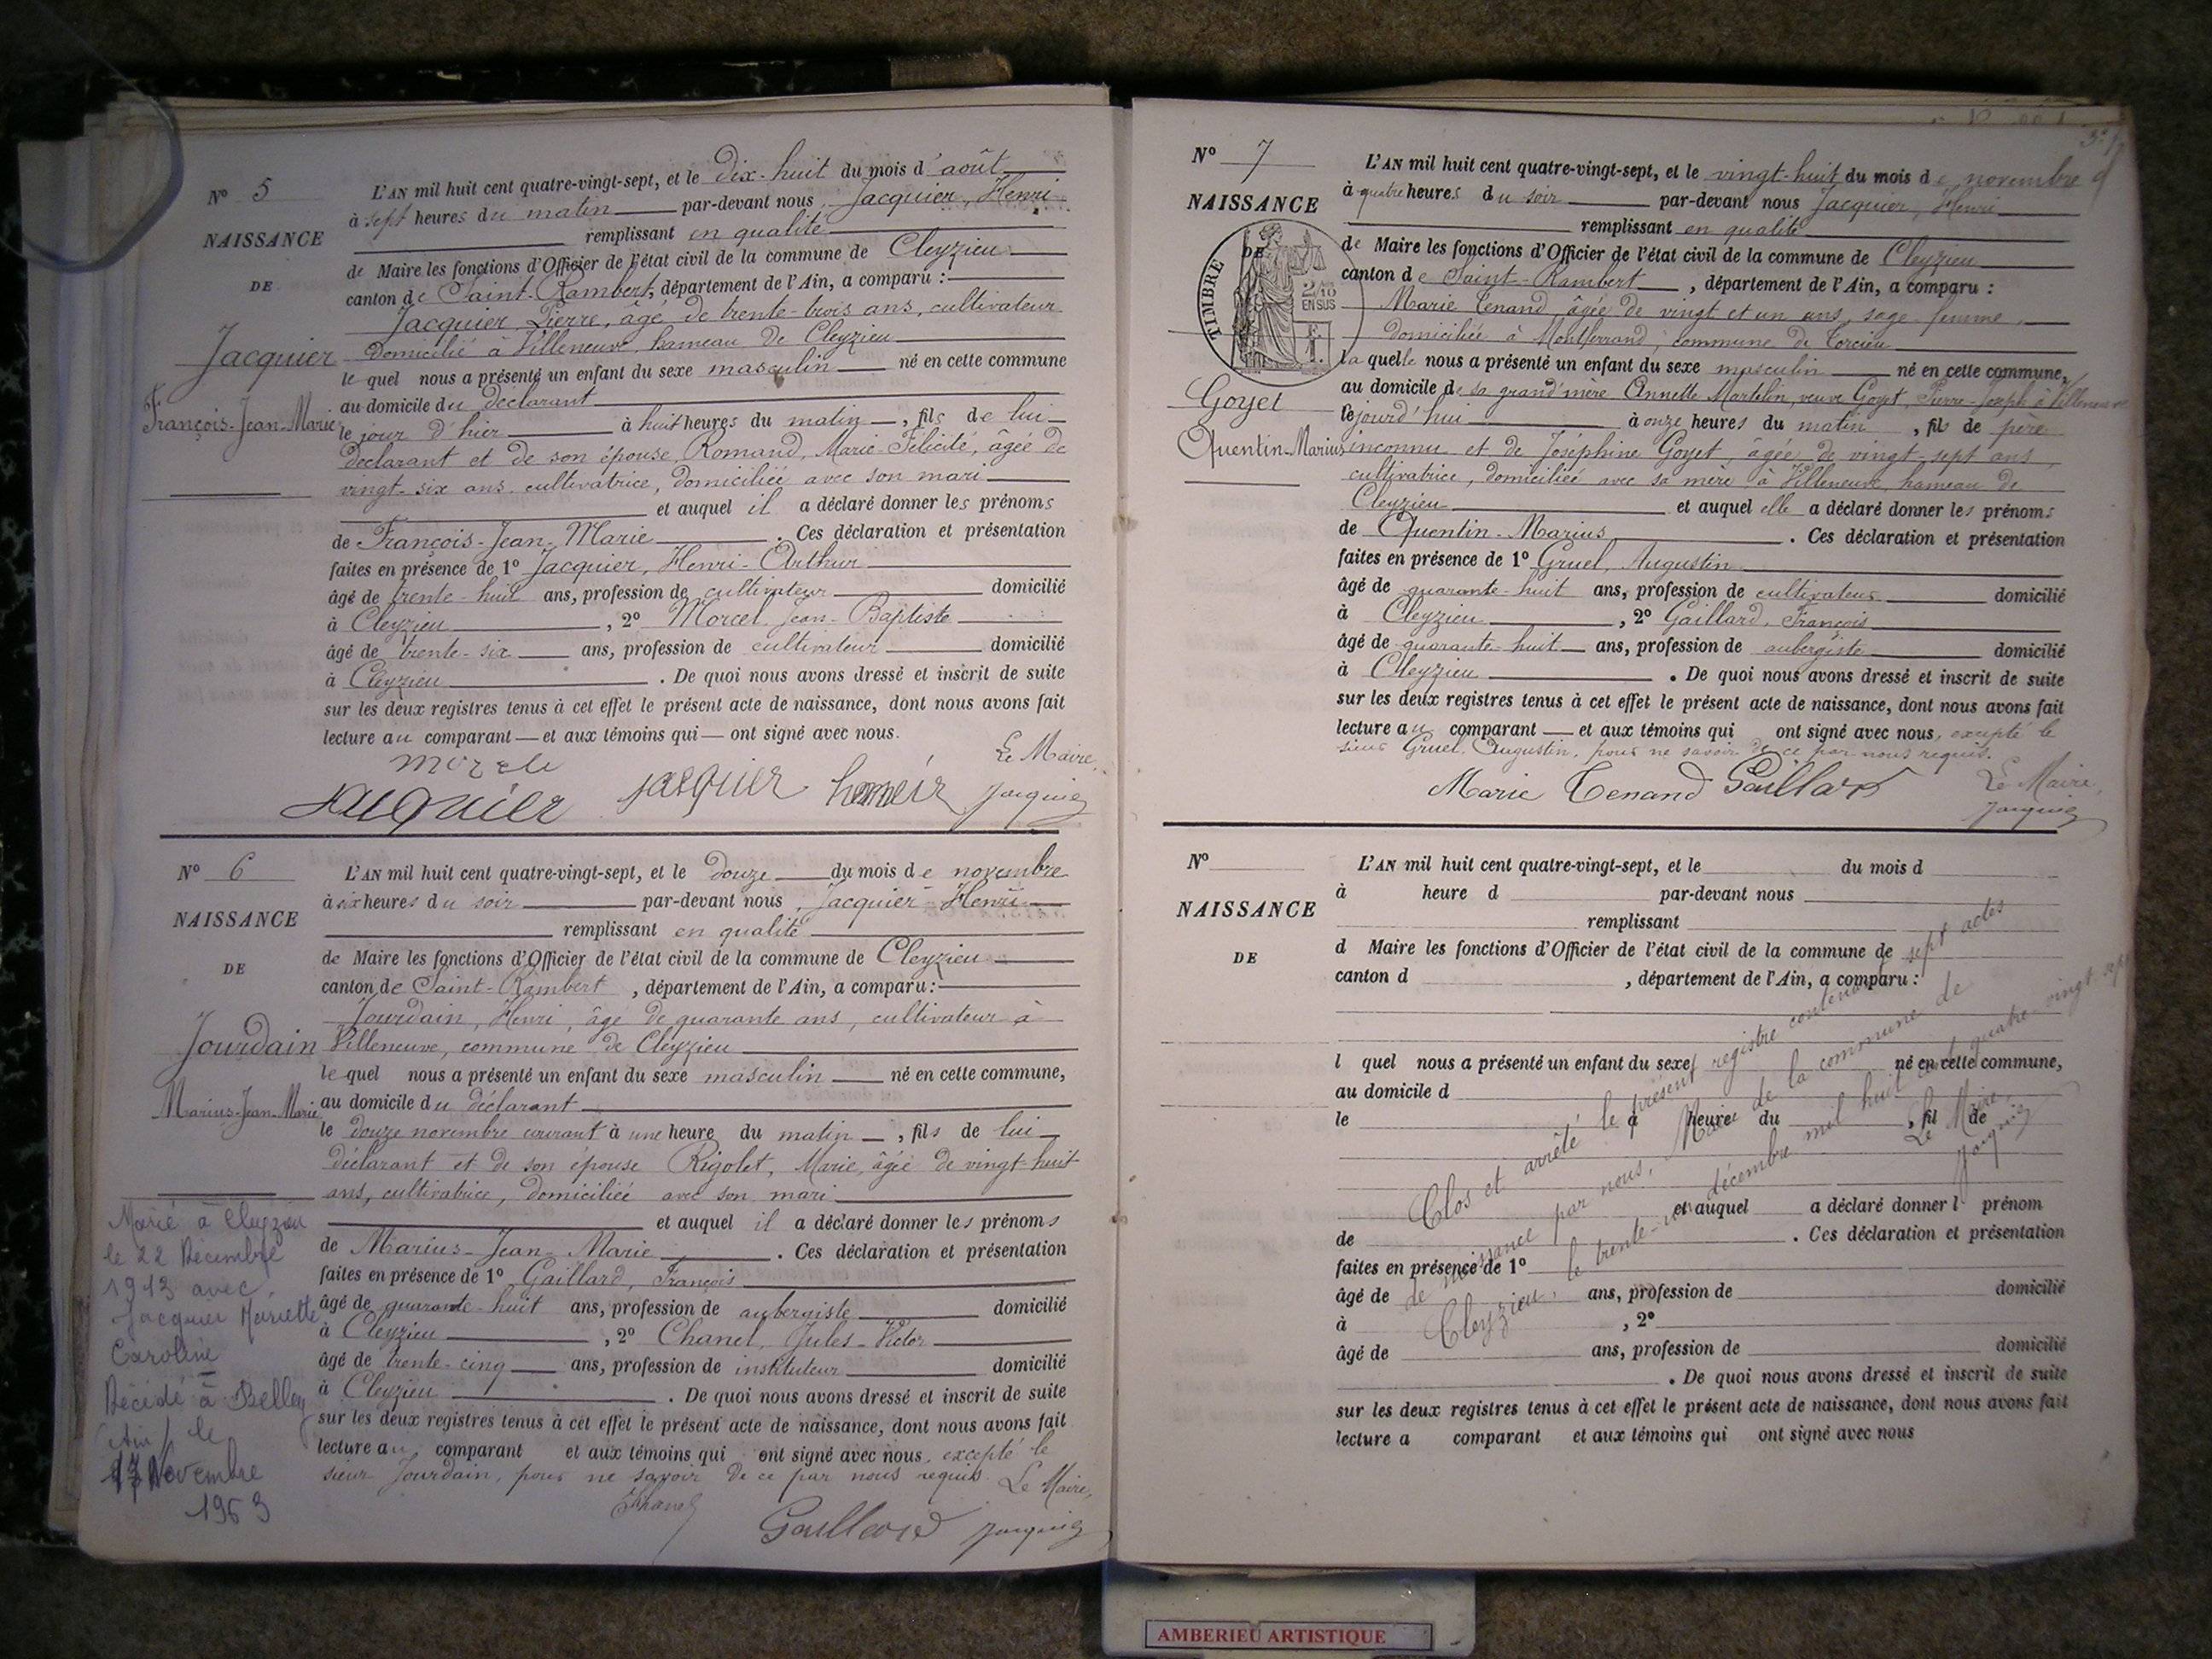 N° 5
NAISSANCE
DE
Jacquier
François-Jean-Marie
L'AN mil huit cent quatre-vingt-sept, et le dix-huit du mois d'août
à sept heures du matin par-devant nous, Jacquier, Henri
remplissant en qualité
de Maire les fonctions d'Officier de l'état civil de la commune de Cleyzieu
canton de Saint-Rambert, département de l'Ain, a comparu :
Jacquier, Pierre, âgé de trente-trois ans, cultivateur
domicilié à Villeneuve, hameau de Cleyzieu
lequel nous a présenté un enfant du sexe masculin né en cette commune
au domicile du déclarant
le jour d'hier à huit heures du matin, fils de lui
déclarant et de son épouse, Romand, Marie-Félicité, âgée de
vingt-six ans, cultivatrice, domiciliée avec son mari
et auquel il a déclaré donner les prénoms
de François-Jean-Marie. Ces déclaration et présentation
faites en présence de 1° Jacquier, Henri-Arthur
âgé de trente-huit ans, profession de cultivateur domicilié
à Cleyzieu, 2° Morcel Jean-Baptiste
âgé de trente-six ans, profession de cultivateur domicilié
à Cleyzieu. De quoi nous avons dressé et inscrit de suite
sur les deux registres tenus à cet effet le présent acte de naissance, dont nous avons fait
lecture au comparant et aux témoins qui ont signé avec nous.
Le Maire,
Jacquier jacquier Jacquier
N° 6
NAISSANCE
DE
Jourdain
Marius-Jean-Marie
L'AN mil huit cent quatre-vingt-sept, et le douze du mois de novembre
à six heures du soir par-devant nous, Jacquier Henri
remplissant en qualité
de Maire les fonctions d'Officier de l'état civil de la commune de Cleyzieu
canton de Saint-Rambert, département de l'Ain, a comparu :
Jourdain, Henri, âgé de quarante ans, cultivateur à
Villeneuve, commune de Cleyzieu
lequel nous a présenté un enfant du sexe masculin né en cette commune,
au domicile du déclarant
le douze novembre courant à une heure du matin, fils de lui
déclarant et de son épouse Rigolet, Marie, âgée de vingt-huit
ans, cultivatrice, domiciliée avec son mari
et auquel il a déclaré donner les prénoms
de Marius-Jean-Marie. Ces déclaration et présentation
faites en présence de 1° Gaillard, François
âgé de quarante-huit ans, profession de aubergiste domicilié
à Cleyzieu, 2° Chanel, Jules-Victor
âgé de trente-cinq ans, profession de instituteur domicilié
à Cleyzieu. De quoi nous avons dressé et inscrit de suite
sur les deux registres tenus à cet effet le présent acte de naissance, dont nous avons fait
lecture au comparant et aux témoins qui ont signé avec nous, excepté le
sieur Jourdain, pour ne savoir de ce par nous requis.
Le Maire,
Chanel Gaillard Jacquier
Marié à Cleyzieu
le 22 Décembre
1913 avec
Jacquier Mariette
Caroline
Décédé à Belley
(Ain) le
17 Novembre
1963
N° 7
NAISSANCE
DE
TIMBRE
2/10
EN SUS
Goyet
Quentin-Marius
L'AN mil huit cent quatre-vingt-sept, et le vingt-huit du mois de novembre
à quatre heures du soir par-devant nous Jacquier, Henri
remplissant en qualité
de Maire les fonctions d'Officier de l'état civil de la commune de Cleyzieu
canton de Saint-Rambert, département de l'Ain, a comparu :
Marie Tenand, âgée de vingt et un ans, sage-femme,
domiciliée à Montferrand, commune de Torcieu
laquelle nous a présenté un enfant du sexe masculin né en cette commune,
au domicile de sa grand'mère Annette Martelin, veuve Goyet, Pierre-Joseph à Villeneuve
lejourd'hui à onze heures du matin, fils de père
inconnu et de Joséphine Goyet, âgée de vingt-sept ans,
cultivatrice, domiciliée avec sa mère à Villeneuve, hameau de
Cleyzieu et auquel elle a déclaré donner les prénoms
de Quentin-Marius. Ces déclaration et présentation
faites en présence de 1° Gruel, Augustin
âgé de quarante-huit ans, profession de cultivateur domicilié
à Cleyzieu, 2° Gaillard, François
âgé de quarante-huit ans, profession de aubergiste domicilié
à Cleyzieu. De quoi nous avons dressé et inscrit de suite
sur les deux registres tenus à cet effet le présent acte de naissance, dont nous avons fait
lecture au comparant et aux témoins qui ont signé avec nous, excepté le
sieur Gruel, Augustin, pour ne savoir de ce par nous requis.
Marie Tenand Gaillard
Le Maire,
Jacquier
N°
NAISSANCE
DE
L'AN mil huit cent quatre-vingt-sept, et le du mois d
à heure d par-devant nous
remplissant
d Maire les fonctions d'Officier de l'état civil de la commune de
canton d , département de l'Ain, a comparu :
l quel nous a présenté un enfant du sexe né en cette commune,
au domicile d
le à heure du , fil de
et auquel a déclaré donner l prénom
de . Ces déclaration et présentation
faites en présence de 1°
âgé de ans, profession de domicilié
à , 2°
âgé de ans, profession de domicilié
. De quoi nous avons dressé et inscrit de suite
sur les deux registres tenus à cet effet le présent acte de naissance, dont nous avons fait
lecture a comparant et aux témoins qui ont signé avec nous
Clos et arrêté le présent registre contenant sept actes
de naissance par nous, Maire de la commune de
Cleyzieu, le trente-un décembre mil huit cent quatre-vingt sept
Le Maire,
Jacquier
AMBERIEU ARTISTIQUE